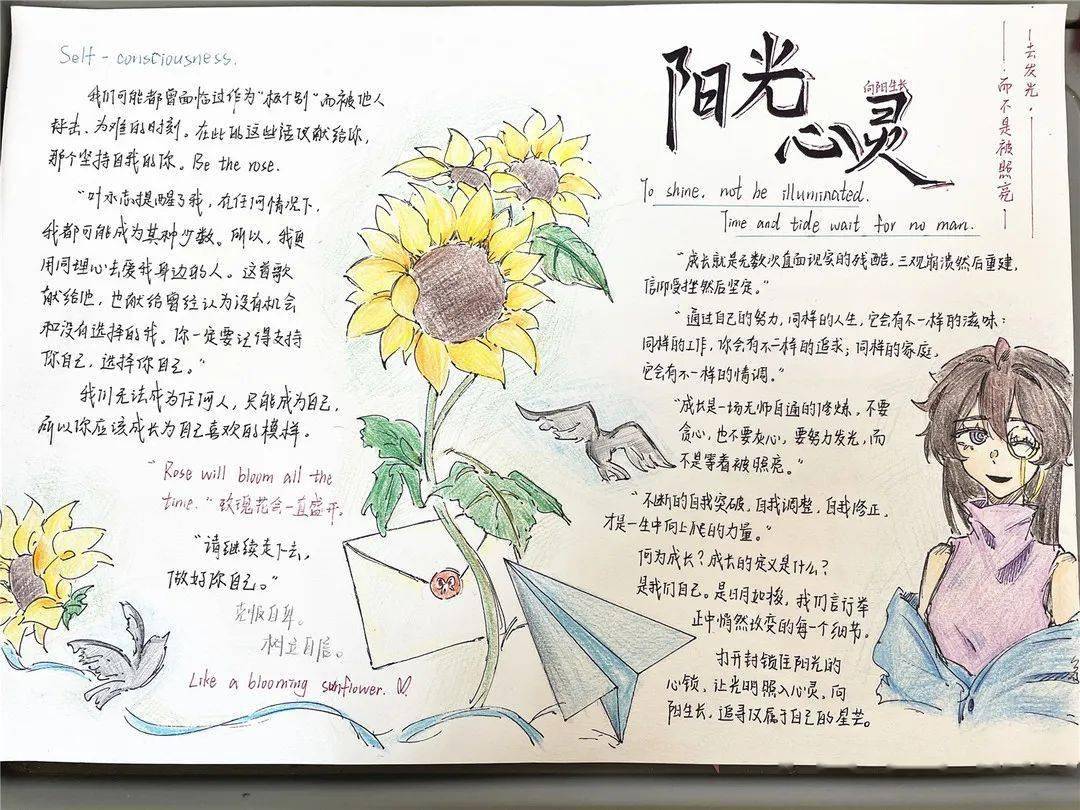 Self-consciousness.
我们可能都曾面临过作为“极个别”而被他人
抨击、为难的时刻。在此把这些话仅献给你,
那个坚持自我的你。Be the rose.
“叶永志提醒了我,在任何情况下,
我都可能成为某种少数。所以,我更
用同理心去爱我身边的人。这首歌
献给他,也献给曾经认为没有机会
和没有选择的我。你一定要记得支持
你自己,选择你自己。”
我们无法成为任何人,只能成为自己,
所以你应该成长为自己喜欢的模样。
“Rose will bloom all the
time.”玫瑰花会一直盛开。
“请继续走下去,
做好你自己。”
克服自卑。
树立自信。
Like a blooming sunflower.
阳光
心灵
向阳生长
去发光
而不是被照亮
To shine, not be illuminated.
Time and tide wait for no man.
“成长就是无数次直面现实的残酷,三观崩溃然后重建,
信仰受挫然后坚定。”
“通过自己的努力,同样的人生,它会有不一样的滋味:
同样的工作,你会有不一样的追求;同样的家庭,
它会有不一样的情调。”
“成长是一场无师自通的修炼,不要
贪心,也不要灰心,要努力发光,而
不是等着被照亮。”
“不断的自我突破,自我调整,自我修正,
才是一生中向上爬的力量。”
何为成长?成长的定义是什么?
是我们自己。是日月如梭,我们言行举
止中悄然改变的每一个细节。
打开封锁住阳光的
心锁,让光明照入心灵,向
阳生长,追寻仅属于自己的星芒。